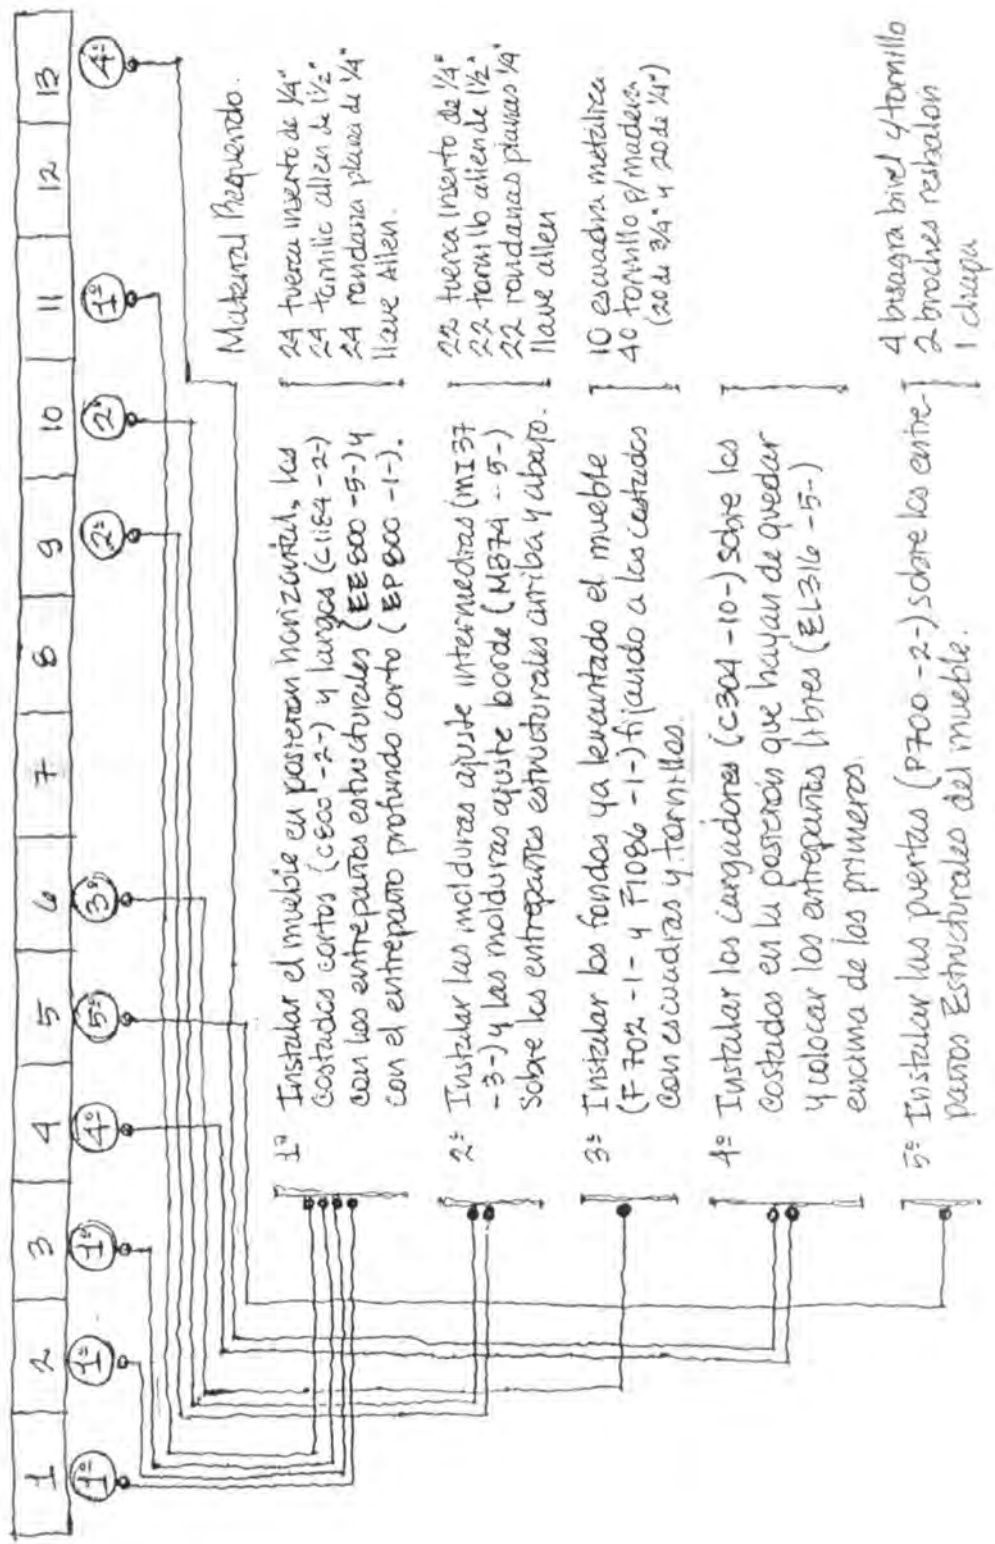 1 2 3 4 5 6 7 8 9 10 11 12 13
1º 1º 1º 4º 5º 3º 2º 2º 1º 4º
Material Requerido.
1º Instalar el mueble en posición horizontal, los
costados cortos (C800 -2-) y largos (C1184 -2-)
con los entrepaños estructurales (EE800 -5-) y
con el entrepaño profundo corto (EP800 -1-).
24 tuerca inserto de 1/4"
24 tornillo allen de 1 1/2"
24 rondana plana de 1/4"
llave Allen.
2º Instalar las molduras ajuste intermedias (MI37
-3-) y las molduras ajuste borde (MB74 -5-)
Sobre los entrepaños estructurales arriba y abajo.
22 tuerca inserto de 1/4"
22 tornillo allen de 1 1/2"
22 rondanas planas 1/4"
llave allen
3º Instalar los fondos ya levantado el mueble
(F702 -1- y F1086 -1-) fijando a los costados
con escuadras y tornillos.
10 escuadra metálica
40 tornillo p/madera
(20 de 3/4" y 20 de 1/4")
4º Instalar los cargadores (C304 -10-) sobre los
costados en la posición que hayan de quedar
y colocar los entrepaños libres (EL316 -5-)
encima de los primeros.
5º Instalar las puertas (P700 -2-) sobre los entre-
paños Estructurales del mueble.
4 bisagra bivel y tornillo
2 broches resbalon
1 chapa